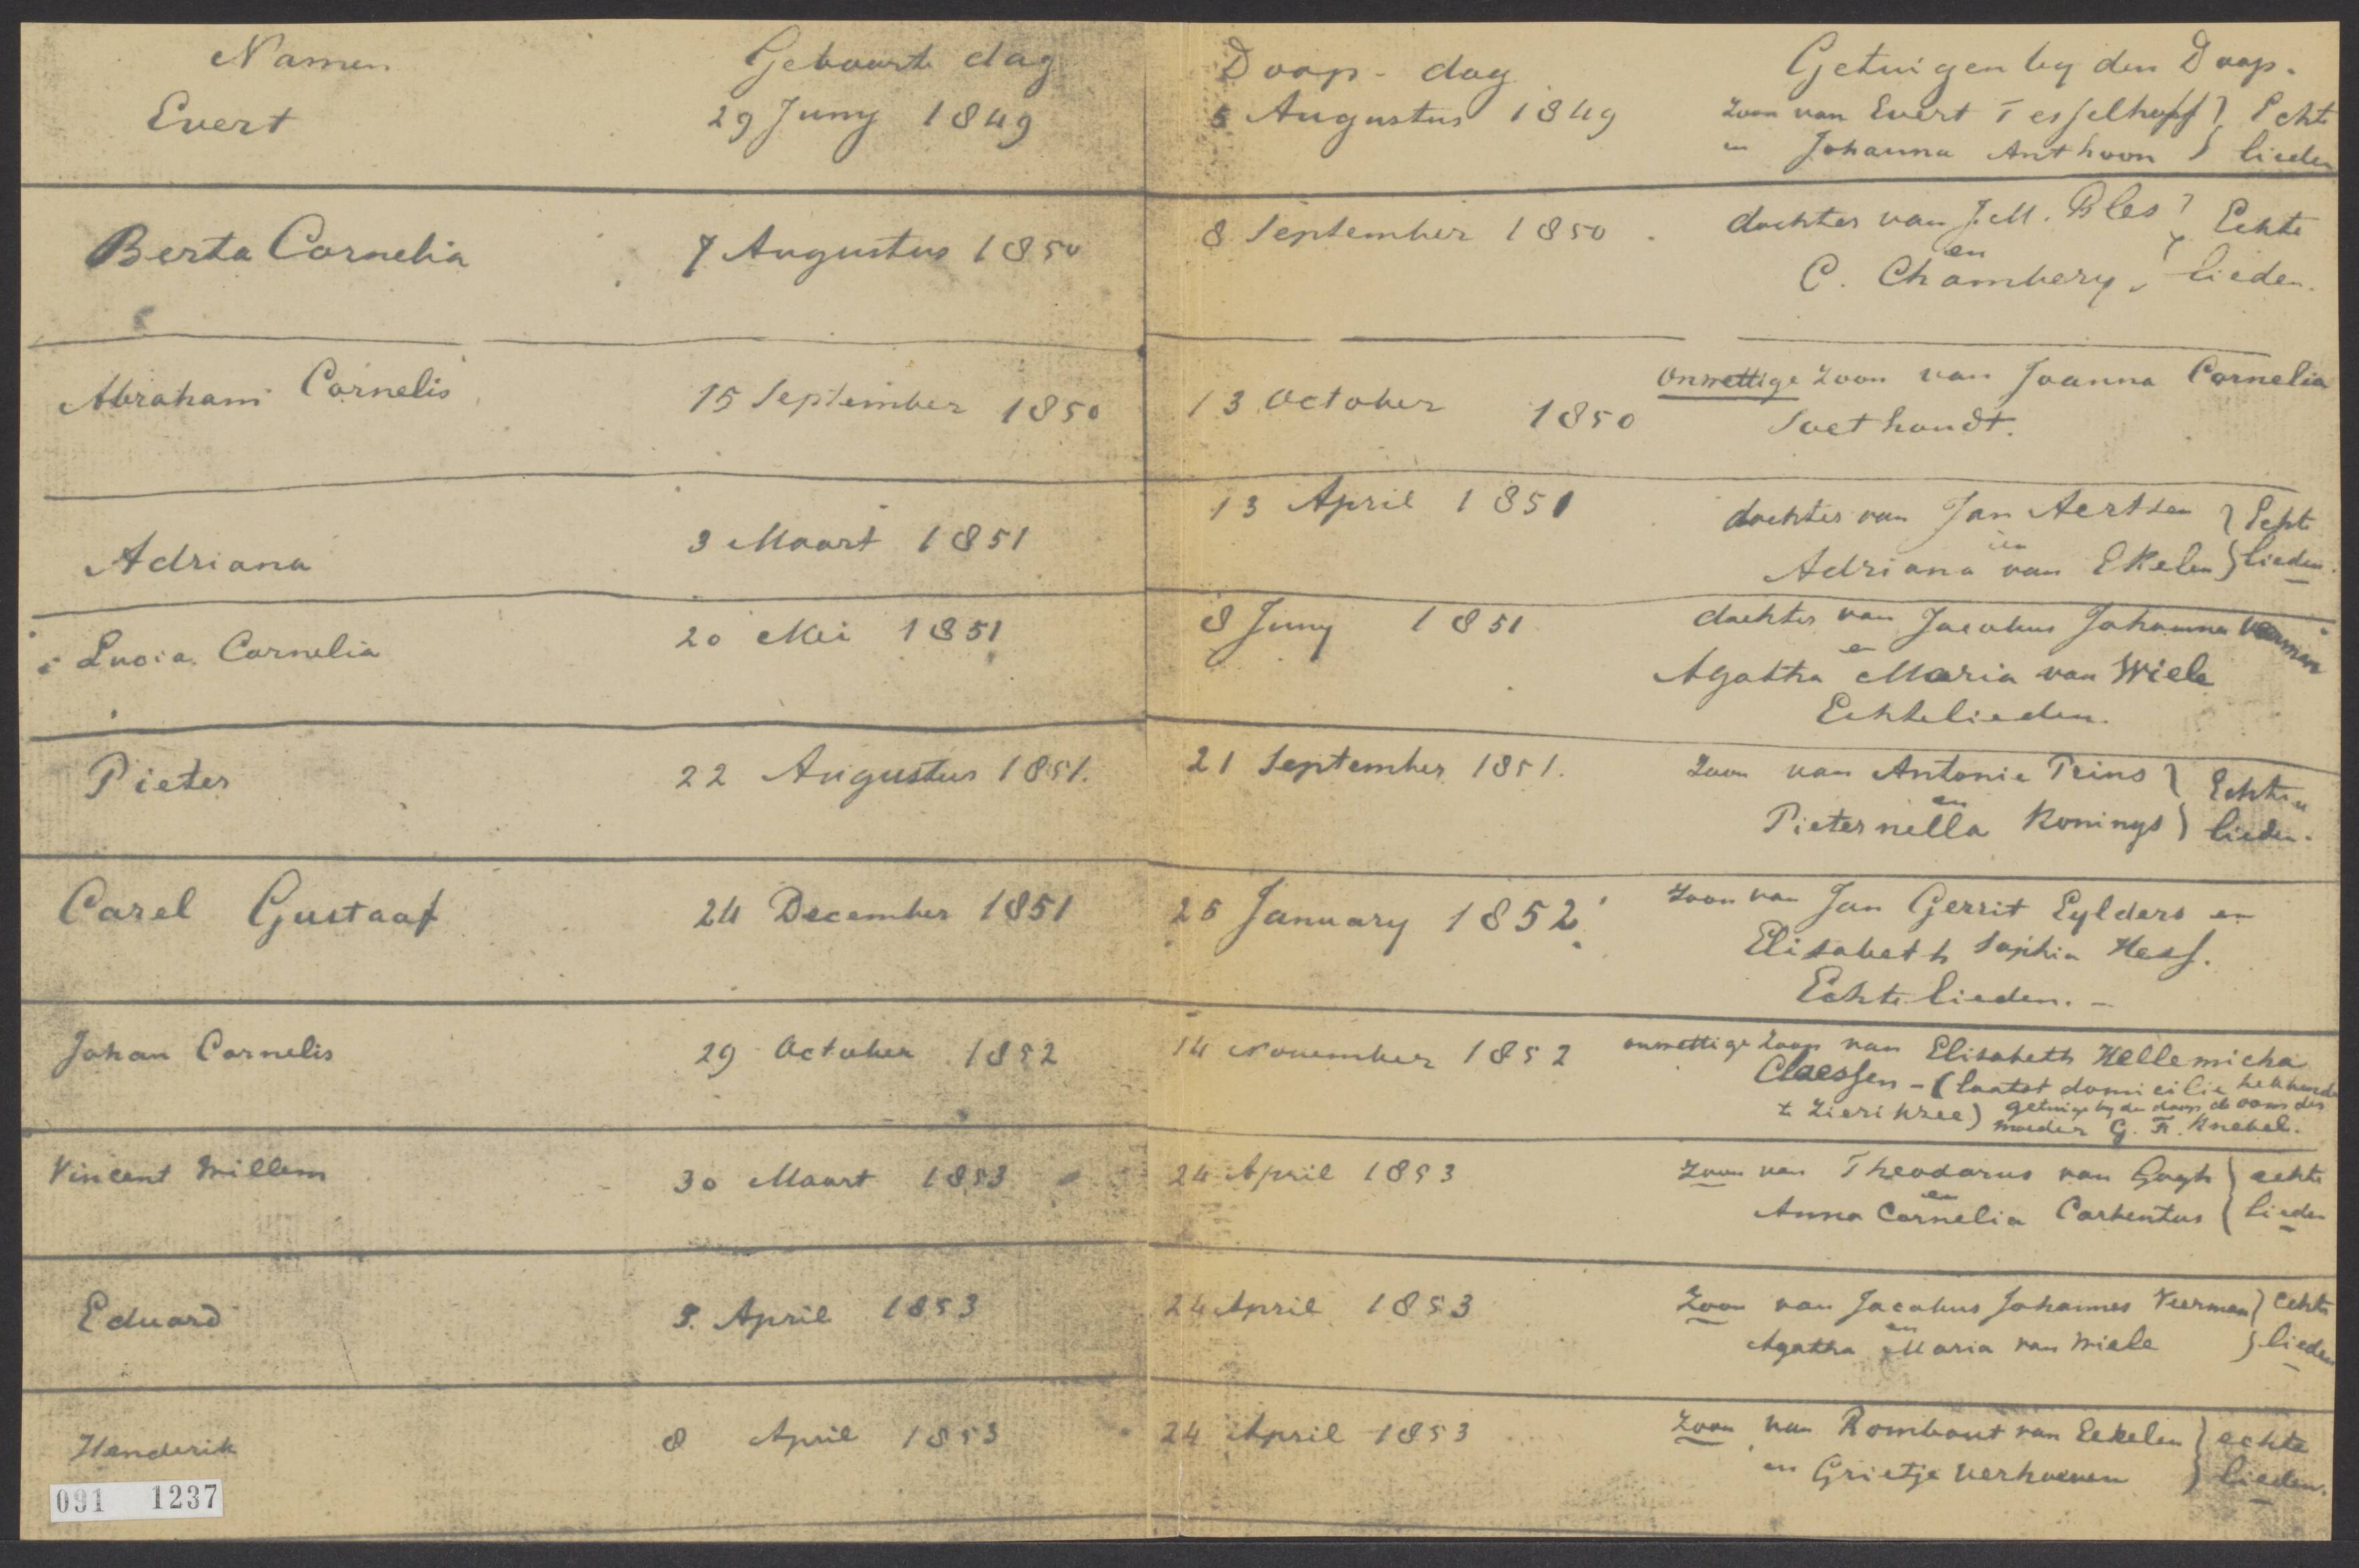 Namen Geboorte dag Doop-dag Getuigen by den Doop.
Evert 29 Juny 1849 5 Augustus 1849 zoon van Evert Tesselhoff } Echte
en Johanna Anthoon } lieden
Berta Cornelia 7 Augustus 1850 8 September 1850. dochter van J.M. Bles } Echte
en
C. Chambery, } lieden.
Abraham Cornelis 15 September 1850 13 October 1850 Onwettige zoon van Joanna Cornelia
Soethoudt.
Adriana 3 Maart 1851 13 April 1851 dochter van Jan Aertsen } Echte
en
Adriana van Ekelen } lieden.
Lucia Cornelia 20 Mei 1851 8 Juny 1851 dochter van Jacobus Johannes Veerman
en
Agatha Maria van Wiele
Echtelieden.
Pieter 22 Augustus 1851. 21 September 1851. Zoon van Antonie Prins } Echte
en
Pieternella Konings } lieden.
Carel Gustaaf 24 December 1851 25 January 1852. zoon van Jan Gerrit Eylders en
Elisabeth Sophia Hess.
Echte lieden. -
Johan Cornelis 29 October 1852 14 November 1852 onwettige zoon van Elisabeth Hellemicha
Claessen - (laatst domicilie hebbende
te Zierikzee) getuige by den doop de oom der
moeder G. F. Knebel.
Vincent Willem 30 Maart 1853 24 April 1853 zoon van Theodorus van Gogh } echte
en
Anna Cornelia Carbentus } lieden
Eduard 5. April 1853 24 April 1853 Zoon van Jacobus Johannes Veerman } echte
en
Agatha Maria van Wiele } lieden
Henderik 8 April 1853 24 April 1853 zoon van Rombout van Eekelen } echte
en Grietje Verhoeven } lieden.
091 1237